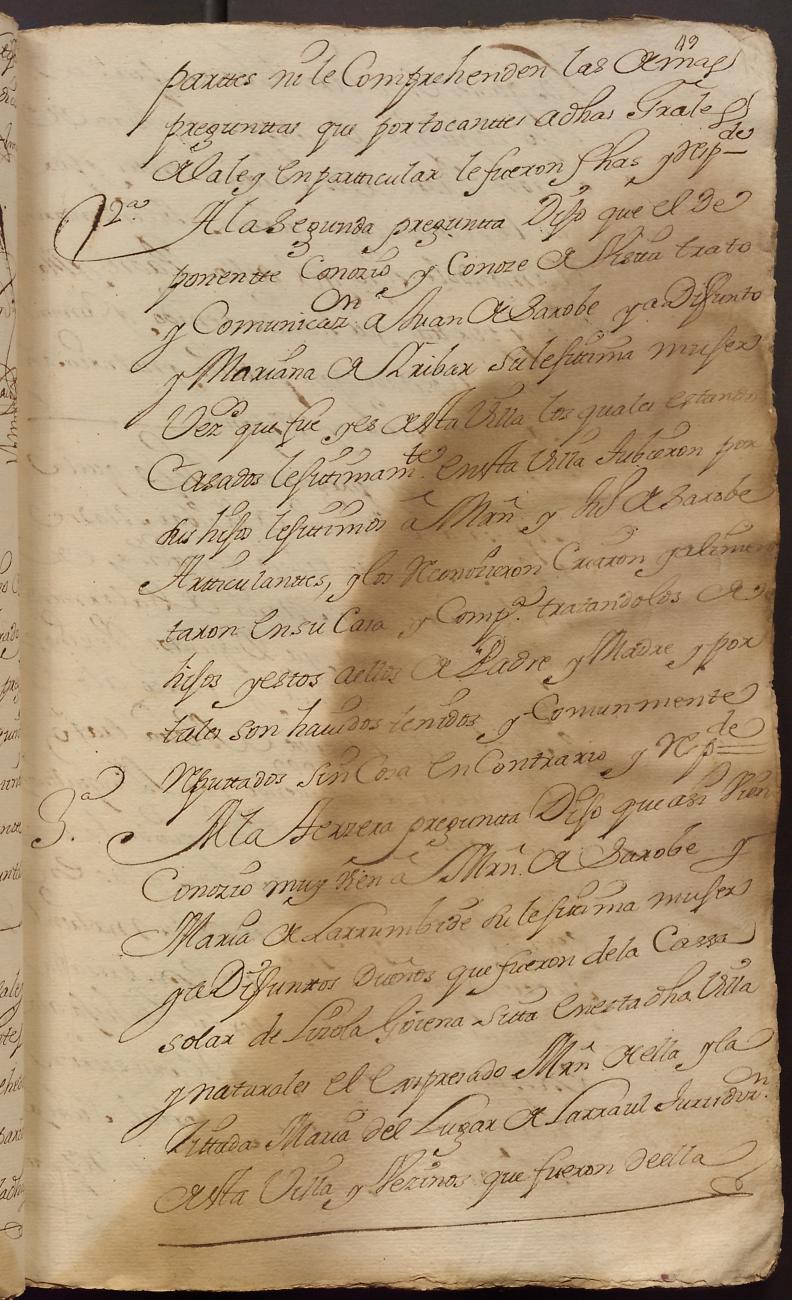 49
parttes ni le Comprehenden las demas
preguntas que por tocanttes adhas Grales
de la ley en particular le fueron fhas y Resp.de
2.a A la Segunda pregunta Dijo que el de
ponentte Conozio y Conoze de Vista trato
y Comunicaz.on a Juan de Sarobe ya Difunto
y Mariana de Yribar su lesitima muser
Vez.s que fue y es desta Villa los quales estando
Casados lesitimam.te en esta Villa tubieron por
sus hisos lesitimos â Mrñ y de Sarobe
Articulanttes, y los Reconozieron Criaron y alimen
taron en su Casa y Comp.a tratandolos de
hijos y estos aellos de Padre y Madre y por
tales son hauidos tenidos y Comunmente
Reputtados sin Cosa en Contrario y Resp.de
3.a A la terzera pregunta Dijo que asi vien
Conozio muy vien â Mrñ de Sarobe y
Maria de Larrumbide su lesitima muser
ya Difunttos Dueños que fueron dela Cassa
solar de Lizola Goiena sitta en esta dha Villa
y naturales el Expresado Mrñ de ella y la
Zittada Maria del Lugar de Larraul Jurisdiz.on
desta Villa y Vezinos que fueron de ella